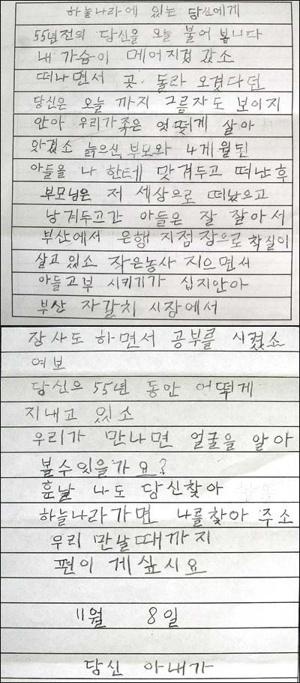 하늘나라에 있는 당신에게
55년전의 당신을 오늘 불어 봅니다
내 가슴이 메어지겁 갔소
떠나면서 곳. 돌라 오겠다던
당신은 오늘 까지 그름자도 보이지
안아 우리가족은 엇떻게 살아
와겠소 늙으신 부모와 4개월된
아들을 나 한테 맛겨두고 떠난후
부모님은 저 세상으로 떠났으고
남겨두고간 아들은 잘 잘아서
부산에서 은행 지점장으로 착실이
살고 있소 작은농사 지으면서
아들고부 시키기가 십지안아
부산 자갈치 시장에서
장사도 하면서 공부를 시켰소
여보
당신으 55년 동안 어떻게
지내고 있소
우리가 만나면 얼굴을 알아
볼수있을가요?
훗날 나도 당신찾아
하늘나라가면 나를찾아 주소
우리 만날때까지
편이 게싶시요
11월 8일
당신 아내가